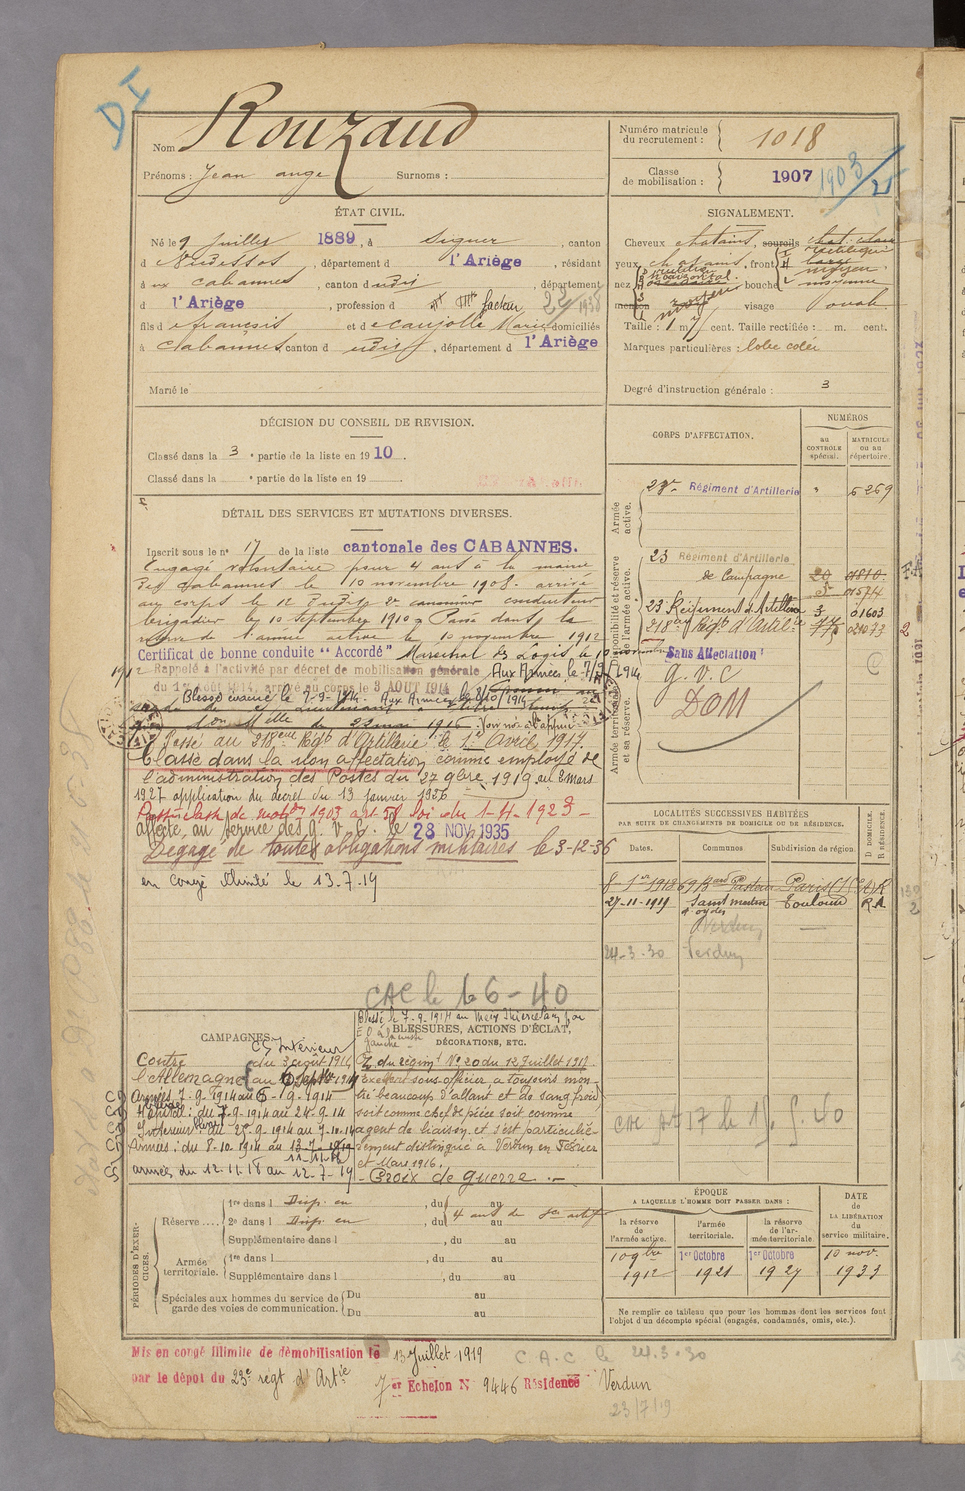 DI
Nom Rouzaud
Prénoms : Jean ange Surnoms :
Numéro matricule du recrutement : 1018
Classe de mobilisation : 1907 1903/21
ÉTAT CIVIL.
Né le 9 juillet 1889, à Siguer, canton
d Vicdessos, département d l'Ariège, résidant
à aux Cabannes, canton d udit, département
d l'Ariège, profession d facteur
fils de françois et de Caujolle Marie domiciliés
à Cabannes, canton d udit, département d l'Ariège
Marié le
SIGNALEMENT.
Cheveux chatains, sourcils chat. clair
yeux chatains, front
nez bouche moyenne
menton visage ovale
Taille : 1 m cent. Taille rectifiée : m. cent.
Marques particulières : lobe collé
Degré d'instruction générale : 3
DÉCISION DU CONSEIL DE REVISION.
Classé dans la 3e partie de la liste en 1910.
Classé dans la e partie de la liste en 19 .
DÉTAIL DES SERVICES ET MUTATIONS DIVERSES.
Inscrit sous le n° 17 de la liste cantonale des CABANNES.
Engagé volontaire pour 4 ans à la mairie
des Cabannes le 10 novembre 1908. arrivé
au corps le 12 dudit 2e canonnier conducteur
brigadier le 10 septembre 1910. Passé dans la
réserve de l'armée active le 10 novembre 1912
Certificat de bonne conduite "Accordé" Maréchal des Logis le 10 novembre
1912
Rappelé à l'activité par décret de mobilisation générale Aux Armées le 7/9/1914
du 1er Août 1914, arrivé au corps le 3 AOUT 1914
Blessé évacué le 7-9-1914 Aux Armées le 8/10/1914
22 mai 1916
Passé au 218eme Régt d'Artillerie le 1er Avril 1917.
Classé dans la non affectation comme employé de
l'administration des Postes du 27 9bre 1919 au 2 mars
1927 application du décret du 13 janvier 1926
Passé classe de mobon 1903 art 58 loi du 1-4-1923
affecté au service des G. V. C. le 28 NOV 1935
Dégagé de toutes obligations militaires le 3-12-36
en congé illimité le 13.7.19
CAC le 16-40
CORPS D'AFFECTATION.
NUMÉROS
au CONTROLE spécial.
MATRICULE ou au répertoire.
Armée active.
23e Régiment d'Artillerie " 5269
Disponibilité et réserve de l'armée active.
23 Régiment d'Artillerie
de Campagne 20 01810
5 01574
23 Régiment d'Artillerie 3 01603
218e Régt d'Artillie 77 02073 2
Armée territoriale et sa réserve.
Sans Affectation
G. V. C
DOM
LOCALITÉS SUCCESSIVES HABITÉES
PAR SUITE DE CHANGEMENTS DE DOMICILE OU DE RÉSIDENCE.
Dates. Communes Subdivision de région. D. DOMICILE. R. RÉSIDENCE.
8-1er 1918 69 Bard Pasteur Paris R
27-11-1919 Saint martin d'oydes Toulouse R.A
Verdun
24-3-30 Verdun
CAC Art 17 le 15.5.40
CAMPAGNES.
CS Intérieur
Contre du 3 août 1914
l'Allemagne au 6 Septbre 1914
Armées 7-9-1914 au 6-9-1914
Hôpital : du 7-9-1914 au 24-9-14
Intérieur : du 25-9-1914 au 7-10-14
Armées : du 8.10.1914 au 13-7-1919
11-11-18
armées du 12.11.18 au 12-7-19
BLESSURES, ACTIONS D'ÉCLAT, DÉCORATIONS, ETC.
Blessé le 7-9-1914 au Meix Thiercelin par
gauche
O. du régimt No 20 du 12 juillet 1917.
Excellent sous-officier, a toujours mon-
tré beaucoup d'allant et de sang froid
soit comme chef de pièce soit comme
agent de liaison, et s'est particuliè-
rement distingué à Verdun en Février
et Mars 1916.
- Croix de guerre -
PÉRIODES D'EXERCICES.
Réserve .... 1re dans l Disp. en , du au
2e dans l Disp. en , du au 4 ans de sce actif
Supplémentaire dans l , du au
Armée territoriale. 1re dans l , du au
Supplémentaire dans l , du au
Spéciales aux hommes du service de garde des voies de communication. Du au
Du au
ÉPOQUE
A LAQUELLE L'HOMME DOIT PASSER DANS :
la réserve de l'armée active. l'armée territoriale. la réserve de l'armée territoriale
DATE DE LA LIBÉRATION du service militaire.
10 9bre 1912 1er Octobre 1921 1er Octobre 1927 10 nov. 1933
Ne remplir ce tableau que pour les hommes dont les services font
l'objet d'un décompte spécial (engagés, condamnés, omis, etc.).
Mis en congé illimité de démobilisation le 13 Juillet 1919
par le dépot du 23e régt d'Artie 7er Echelon N° 9446 Résidence Verdun
C.A.C le 24.3.30
23/7/19